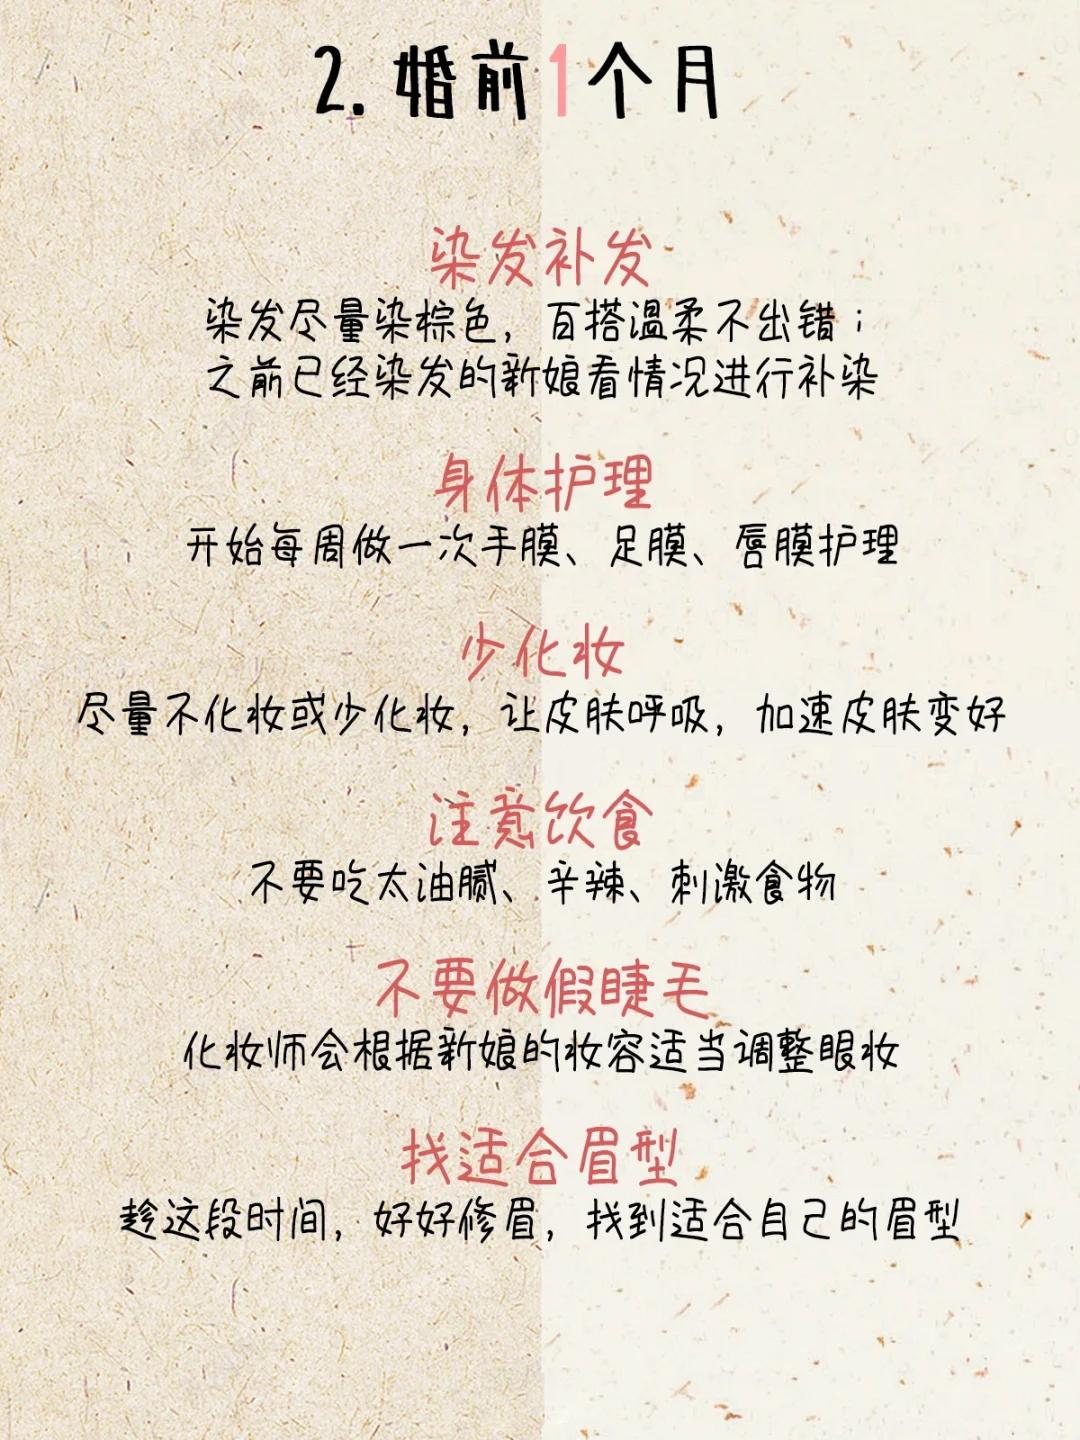 2.婚前1个月
染发补发
染发尽量染棕色，百搭温柔不出错；
之前已经染发的新娘看情况进行补染
身体护理
开始每周做一次手膜、足膜、唇膜护理
少化妆
尽量不化妆或少化妆，让皮肤呼吸，加速皮肤变好
注意饮食
不要吃太油腻、辛辣、刺激食物
不要做假睫毛
化妆师会根据新娘的妆容适当调整眼妆
找适合眉型
趁这段时间，好好修眉，找到适合自己的眉型